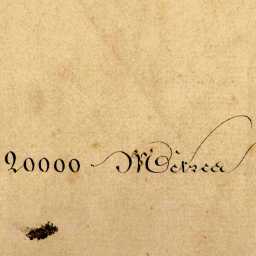 20000 Mètres